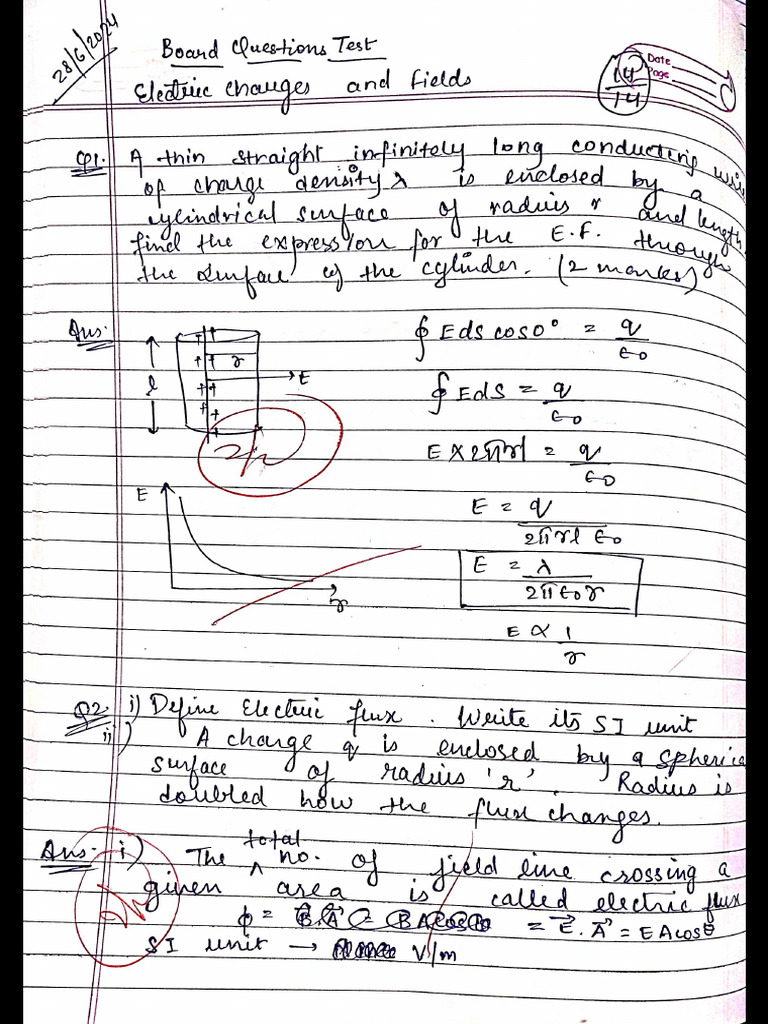 28/6/2024
Board Questions Test
Electric charges and fields
14/14
Date
Page
Q1. A thin straight infinitely long conducting wire
of charge density λ is enclosed by a
cylindrical surface of radius r and length
find the expression for the E.F. through
the surface of the cylinder. (2 marks)
Ans.
∮ E ds cos 0° = q/ϵ0
∮ E ds = q/ϵ0
E × 2πrl = q/ϵ0
E = q/2πrl ϵ0
E = λ/2πϵ0r
E ∝ 1/r
l
r
E
E
r
Q2. i) Define Electric flux. Write its SI unit
ii) A charge q is enclosed by a spherica
surface of radius 'r'. Radius is
doubled how the flux changes.
Ans. i) The total no. of field line crossing a
given area is called electric flux
ϕ = B⃗.A⃗ = BA cosθ = E⃗.A⃗ = EA cosθ
SI unit → V/m